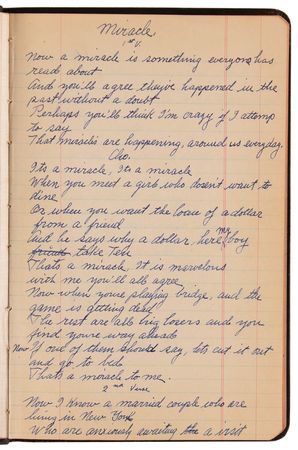 Miracle
1st V.
Now a miracle is something everyone has
read about
And you'll agree they've happened in the
past without a doubt
Perhaps you'll think I'm crazy if I attemp
to say
That miracles are happening around us everyday.
Cho.
Its a miracle, Its a miracle
When you meet a girl who dosen't want to
dine
Or when you want the loan of a dollar
from a friend
And he says why a dollar, here my boy
take Ten
Thats a miracle, It is marvelous
with me you'll all agree
Now when youre playing bridge, and the
game is getting dead
The rest are all big losers and you
find you're way ahead
Now If one of them should say, lets cut it out
and go to bed
Thats a miracle to me.
2nd Verse
Now I Know a married couple who are
living in New York
Who are anxiously awaiting a visit